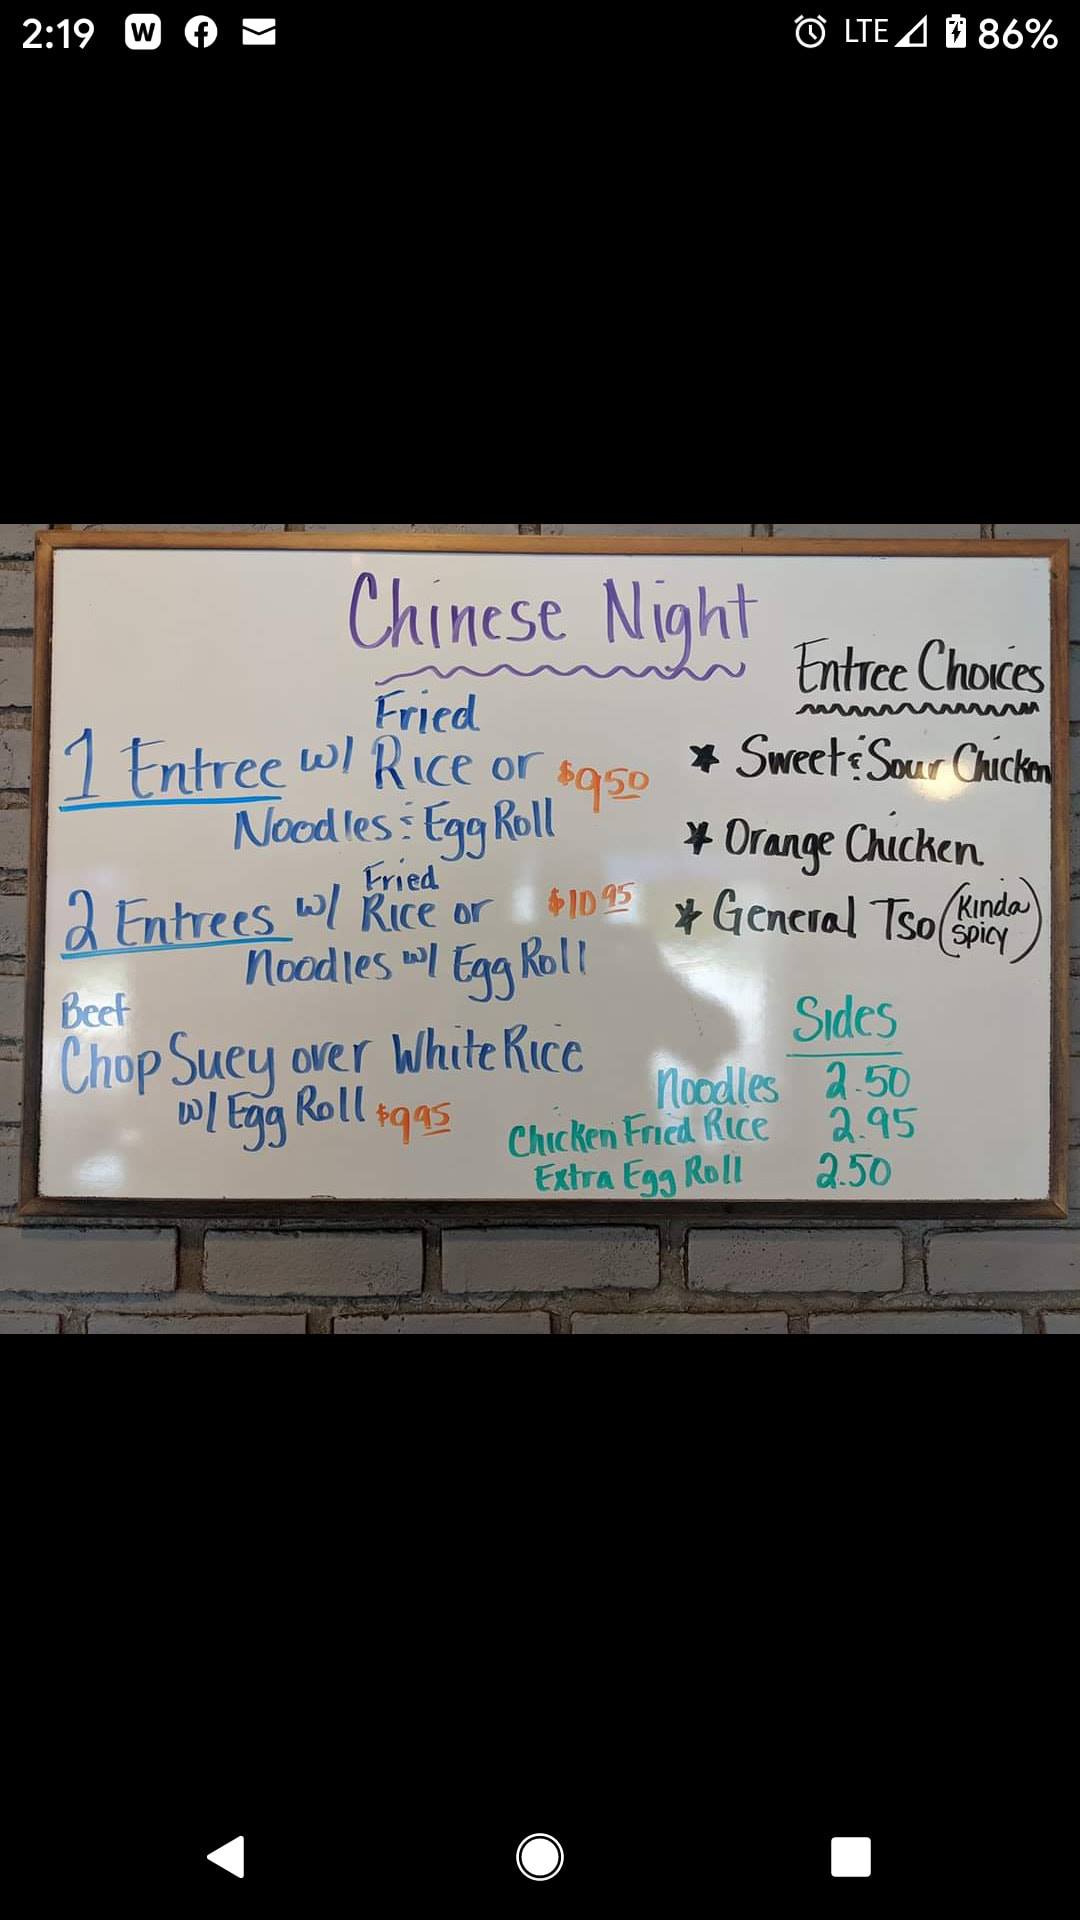 2:19 W 86%
LTE
Chinese Night
Fried
1 Entree w/ Rice or $9.50
Noodles & Egg Roll
Fried
2 Entrees w/ Rice or $10.95
Noodles w/ Egg Roll
Beef
Chop Suey over White Rice
w/ Egg Roll $9.95
Entree Choices
* Sweet & Sour Chicken
* Orange Chicken
* General Tso (Kinda
Spicy)
Sides
Noodles 2.50
Chicken Fried Rice 2.95
Extra Egg Roll 2.50